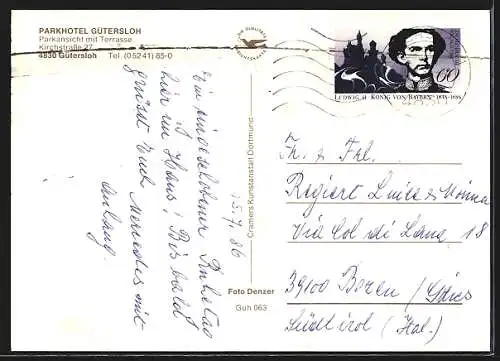 PARKHOTEL GÜTERSLOH
Parkansicht mit Terrasse
Kirchstraße 27
4830 Gütersloh Tel. (05241) 85-0
Ein eingeschobener Ruhetag
hier im Haus! Bis bald
grüsst Euch Mercedes mit
Anhang.
15.7.86
Cramers Kunstanstalt Dortmund
Foto Denzer
Guh 063
60
LUDWIG II. KÖNIG VON BAYERN 1845-1886
Fr. & Frl.
Luise &
Via Col di Lana 18
39100 Bozen / Gries
Südtirol (Ital.)